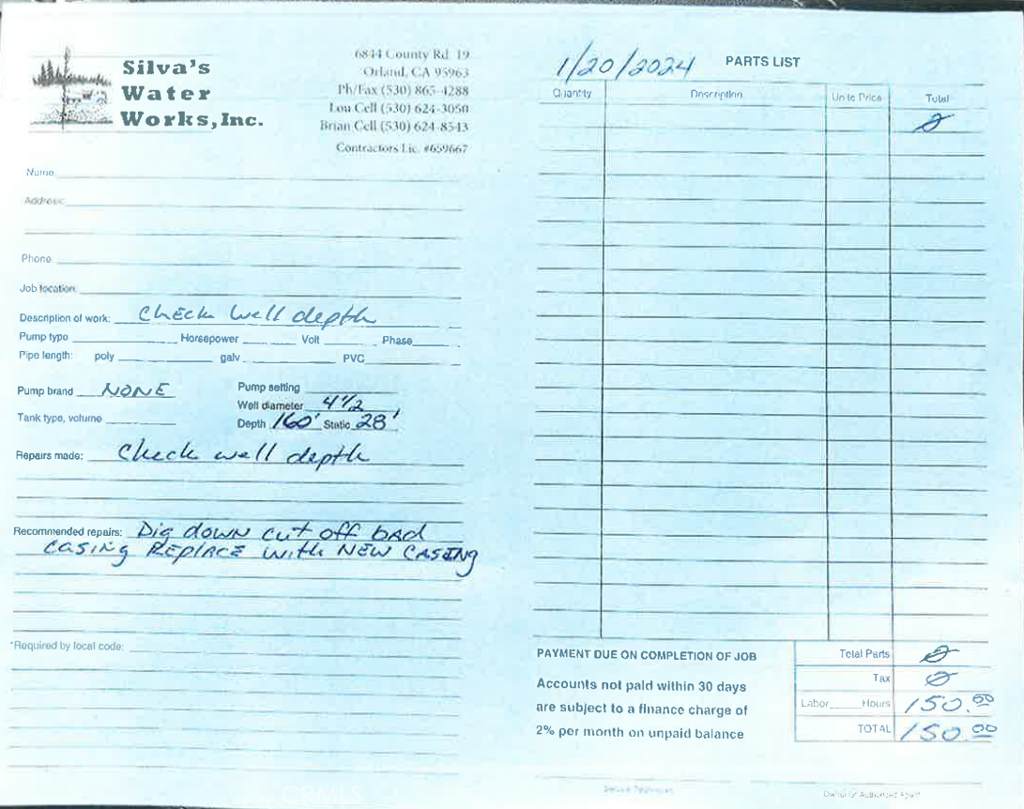 Silva's
Water
Works, Inc.
6844 County Rd. 19
Orland, CA 95963
Ph/Fax (530) 865-4288
Lou Cell (530) 624-3050
Brian Cell (530) 624-8543
Contractors Lic. #659667
Name
Address:
Phone
Job location:
Description of work: Check well depth
Pump type Horsepower Volt Phase
Pipe length: poly galv PVC
Pump brand NONE
Pump setting
Well diameter 4 1/2
Tank type, volume
Depth 160' Static 28'
Repairs made: Check well depth
Recommended repairs: Dig down cut off bad
casing Replace with NEW CASING
*Required by local code:
1/20/2024 PARTS LIST
Quantity Description Units Price Total
Ø
PAYMENT DUE ON COMPLETION OF JOB
Accounts not paid within 30 days
are subject to a finance charge of
2% per month on unpaid balance
Total Parts Ø
Tax Ø
Labor Hours 150.00
TOTAL 150.00
Service Technician
Owner or Authorized Agent
CRMLS